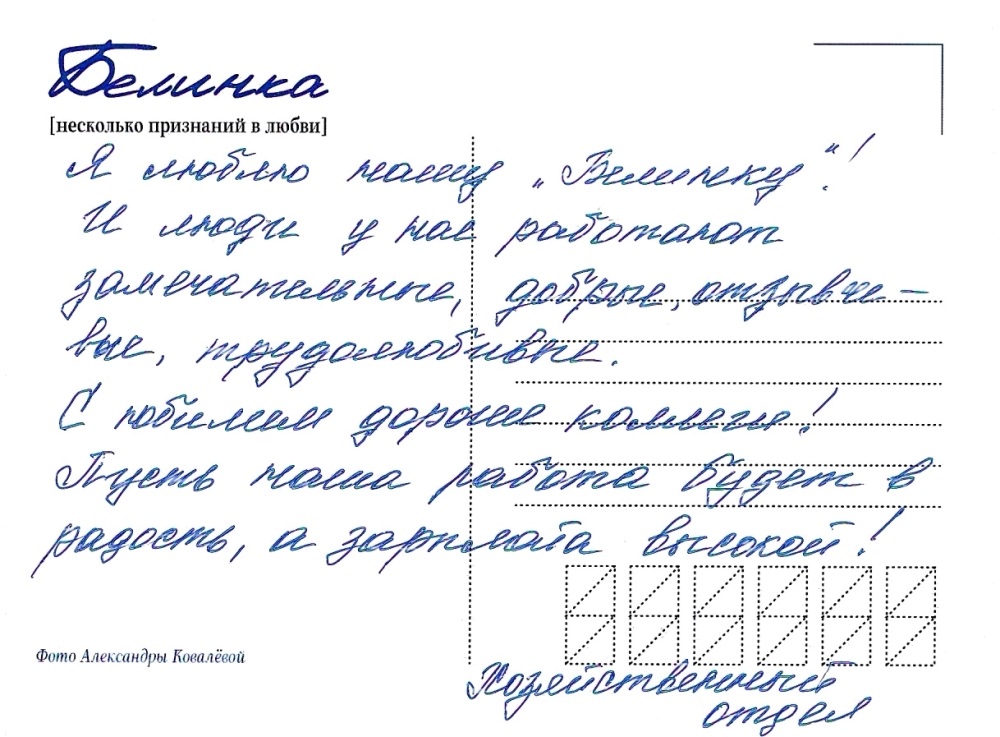 Белинка
[несколько признаний в любви]
Я люблю нашу „Белинку“!
И люди у нас работают
замечательные, добрые, отзывчи-
вые, трудолюбивые.
С юбилеем дорогие коллеги!
Пусть наша работа будет в
радость, а зарплата высокой!
Фото Александры Ковалёвой
Хозяйственный
отдел